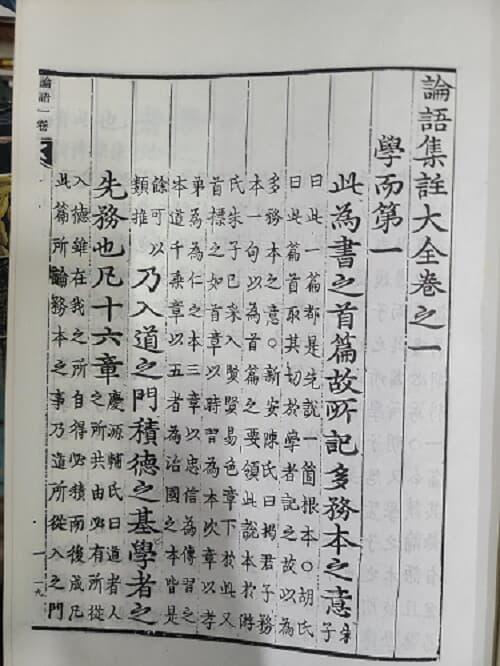 論語集註大全卷之一
學而第一
此為書之首篇故所記多務本之意朱子
曰此一篇都是先說一箇根本○胡氏
曰此篇首取其切於學者記之故以為
多務本之意○新安陳氏曰揭君子務
本一句以為首篇之要領此說本於游
氏朱子已采入賢賢易色章下於此又
首標之如首章以時習為本次章以孝
弟為為仁之本三章以忠信為傳習之
本道千乘章以五者為治國之本皆是
餘可以類推乃入道之門積德之基學者之
先務也凡十六章慶源輔氏曰道者人之所共由必有所從
入德雖在我之所自得必積而後成凡
此篇所論務本之事乃道所從入之門
論語一卷
一
一九